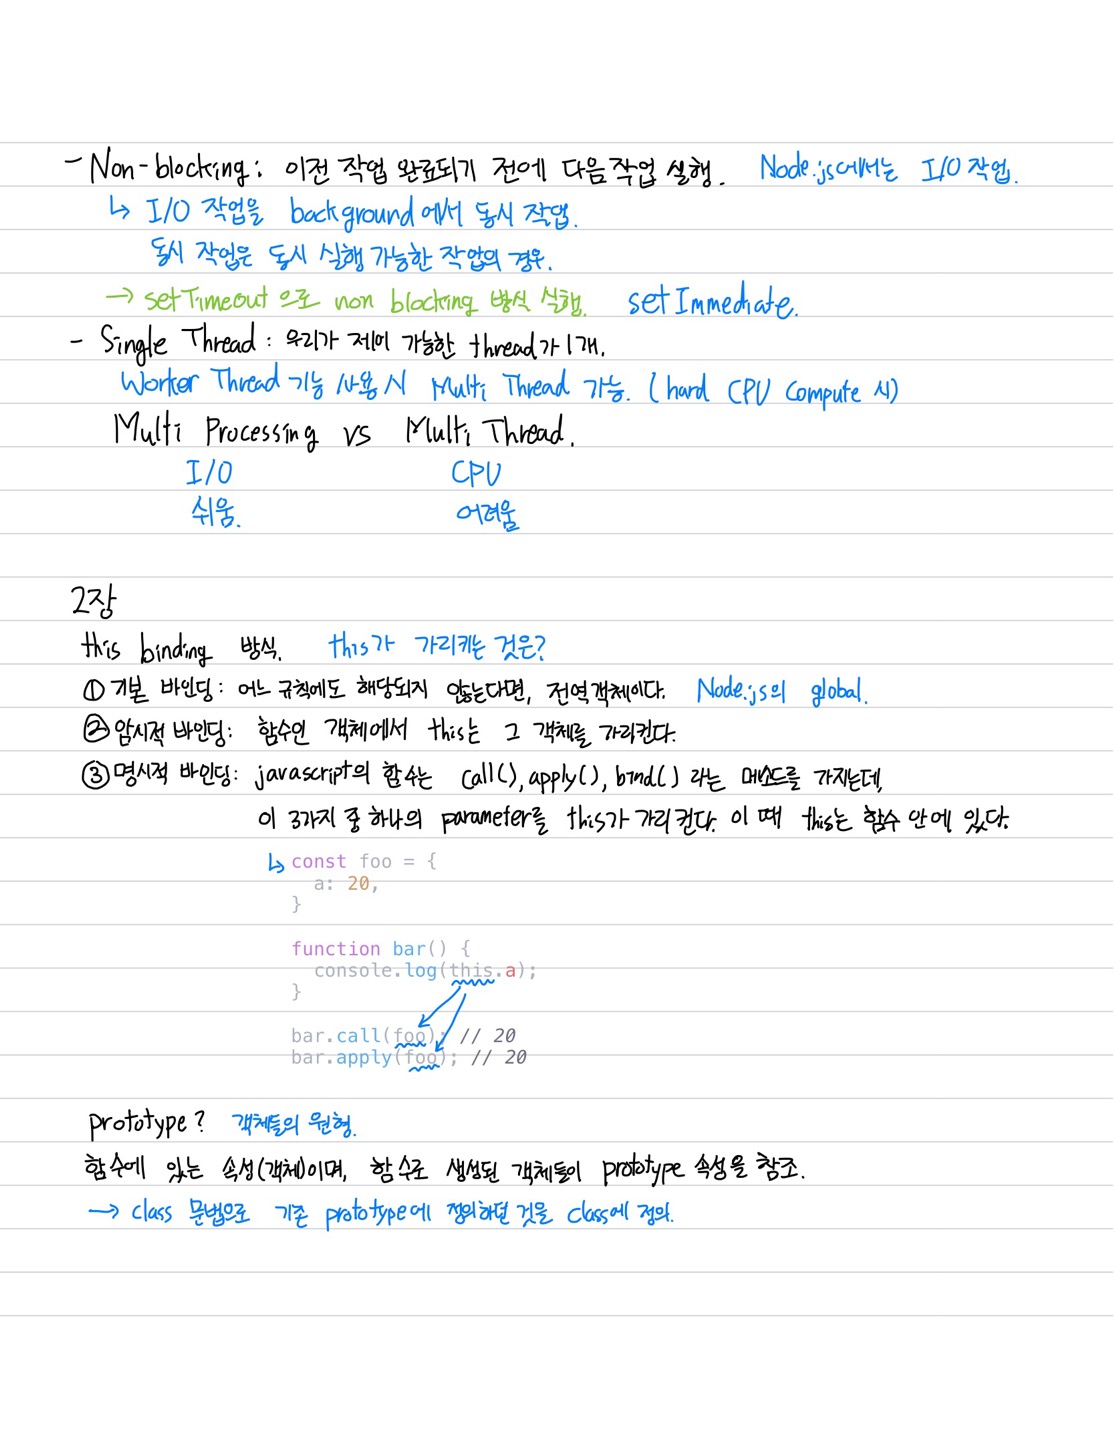 - Non-blocking : 이전 작업 완료되기 전에 다음 작업 실행. Node.js에서는 I/O 작업.
↳ I/O 작업을 background에서 동시 작업.
동시 작업은 동시 실행 가능한 작업의 경우.
→ setTimeout 으로 non blocking 방식 실행. setImmediate.
- Single Thread : 우리가 제어 가능한 thread가 1개.
Worker Thread 기능 사용 시 Multi Thread 가능. (hard CPU Compute 시)
Multi Processing vs Multi Thread.
I/O CPU
쉬움. 어려움
2장
this binding 방식. this가 가리키는 것은?
① 기본 바인딩 : 어느 규칙에도 해당되지 않는다면, 전역객체이다. Node.js의 global.
② 암시적 바인딩 : 함수인 객체에서 this는 그 객체를 가리킨다.
③ 명시적 바인딩 : javascript의 함수는 call(), apply(), bind() 라는 메소드를 가지는데,
이 3가지 중 하나의 parameter를 this가 가리킨다. 이 때 this는 함수 안에 있다.
↳ const foo = {
a: 20,
}
function bar() {
console.log(this.a);
}
bar.call(foo); // 20
bar.apply(foo); // 20
prototype? 객체들의 원형.
함수에 있는 속성(객체)이며, 함수로 생성된 객체들이 prototype 속성을 참조.
→ class 문법으로 기존 prototype에 정의하던 것을 class에 정의.